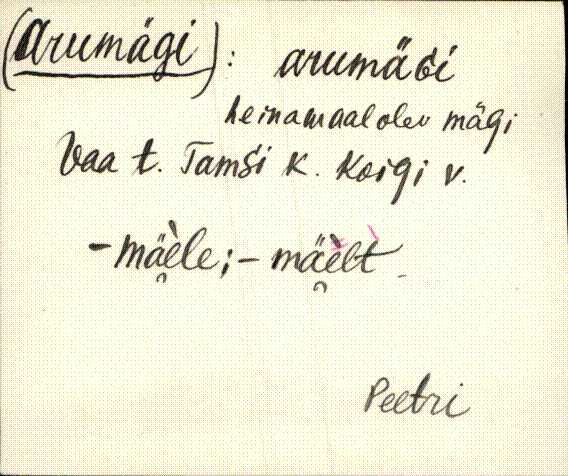 (Arumägi): arumäGi
heinamaal olev mägi
Vaa t. Tamsi k. Koigi v.
-mäè̬le; -mäè̬lt
Peetri